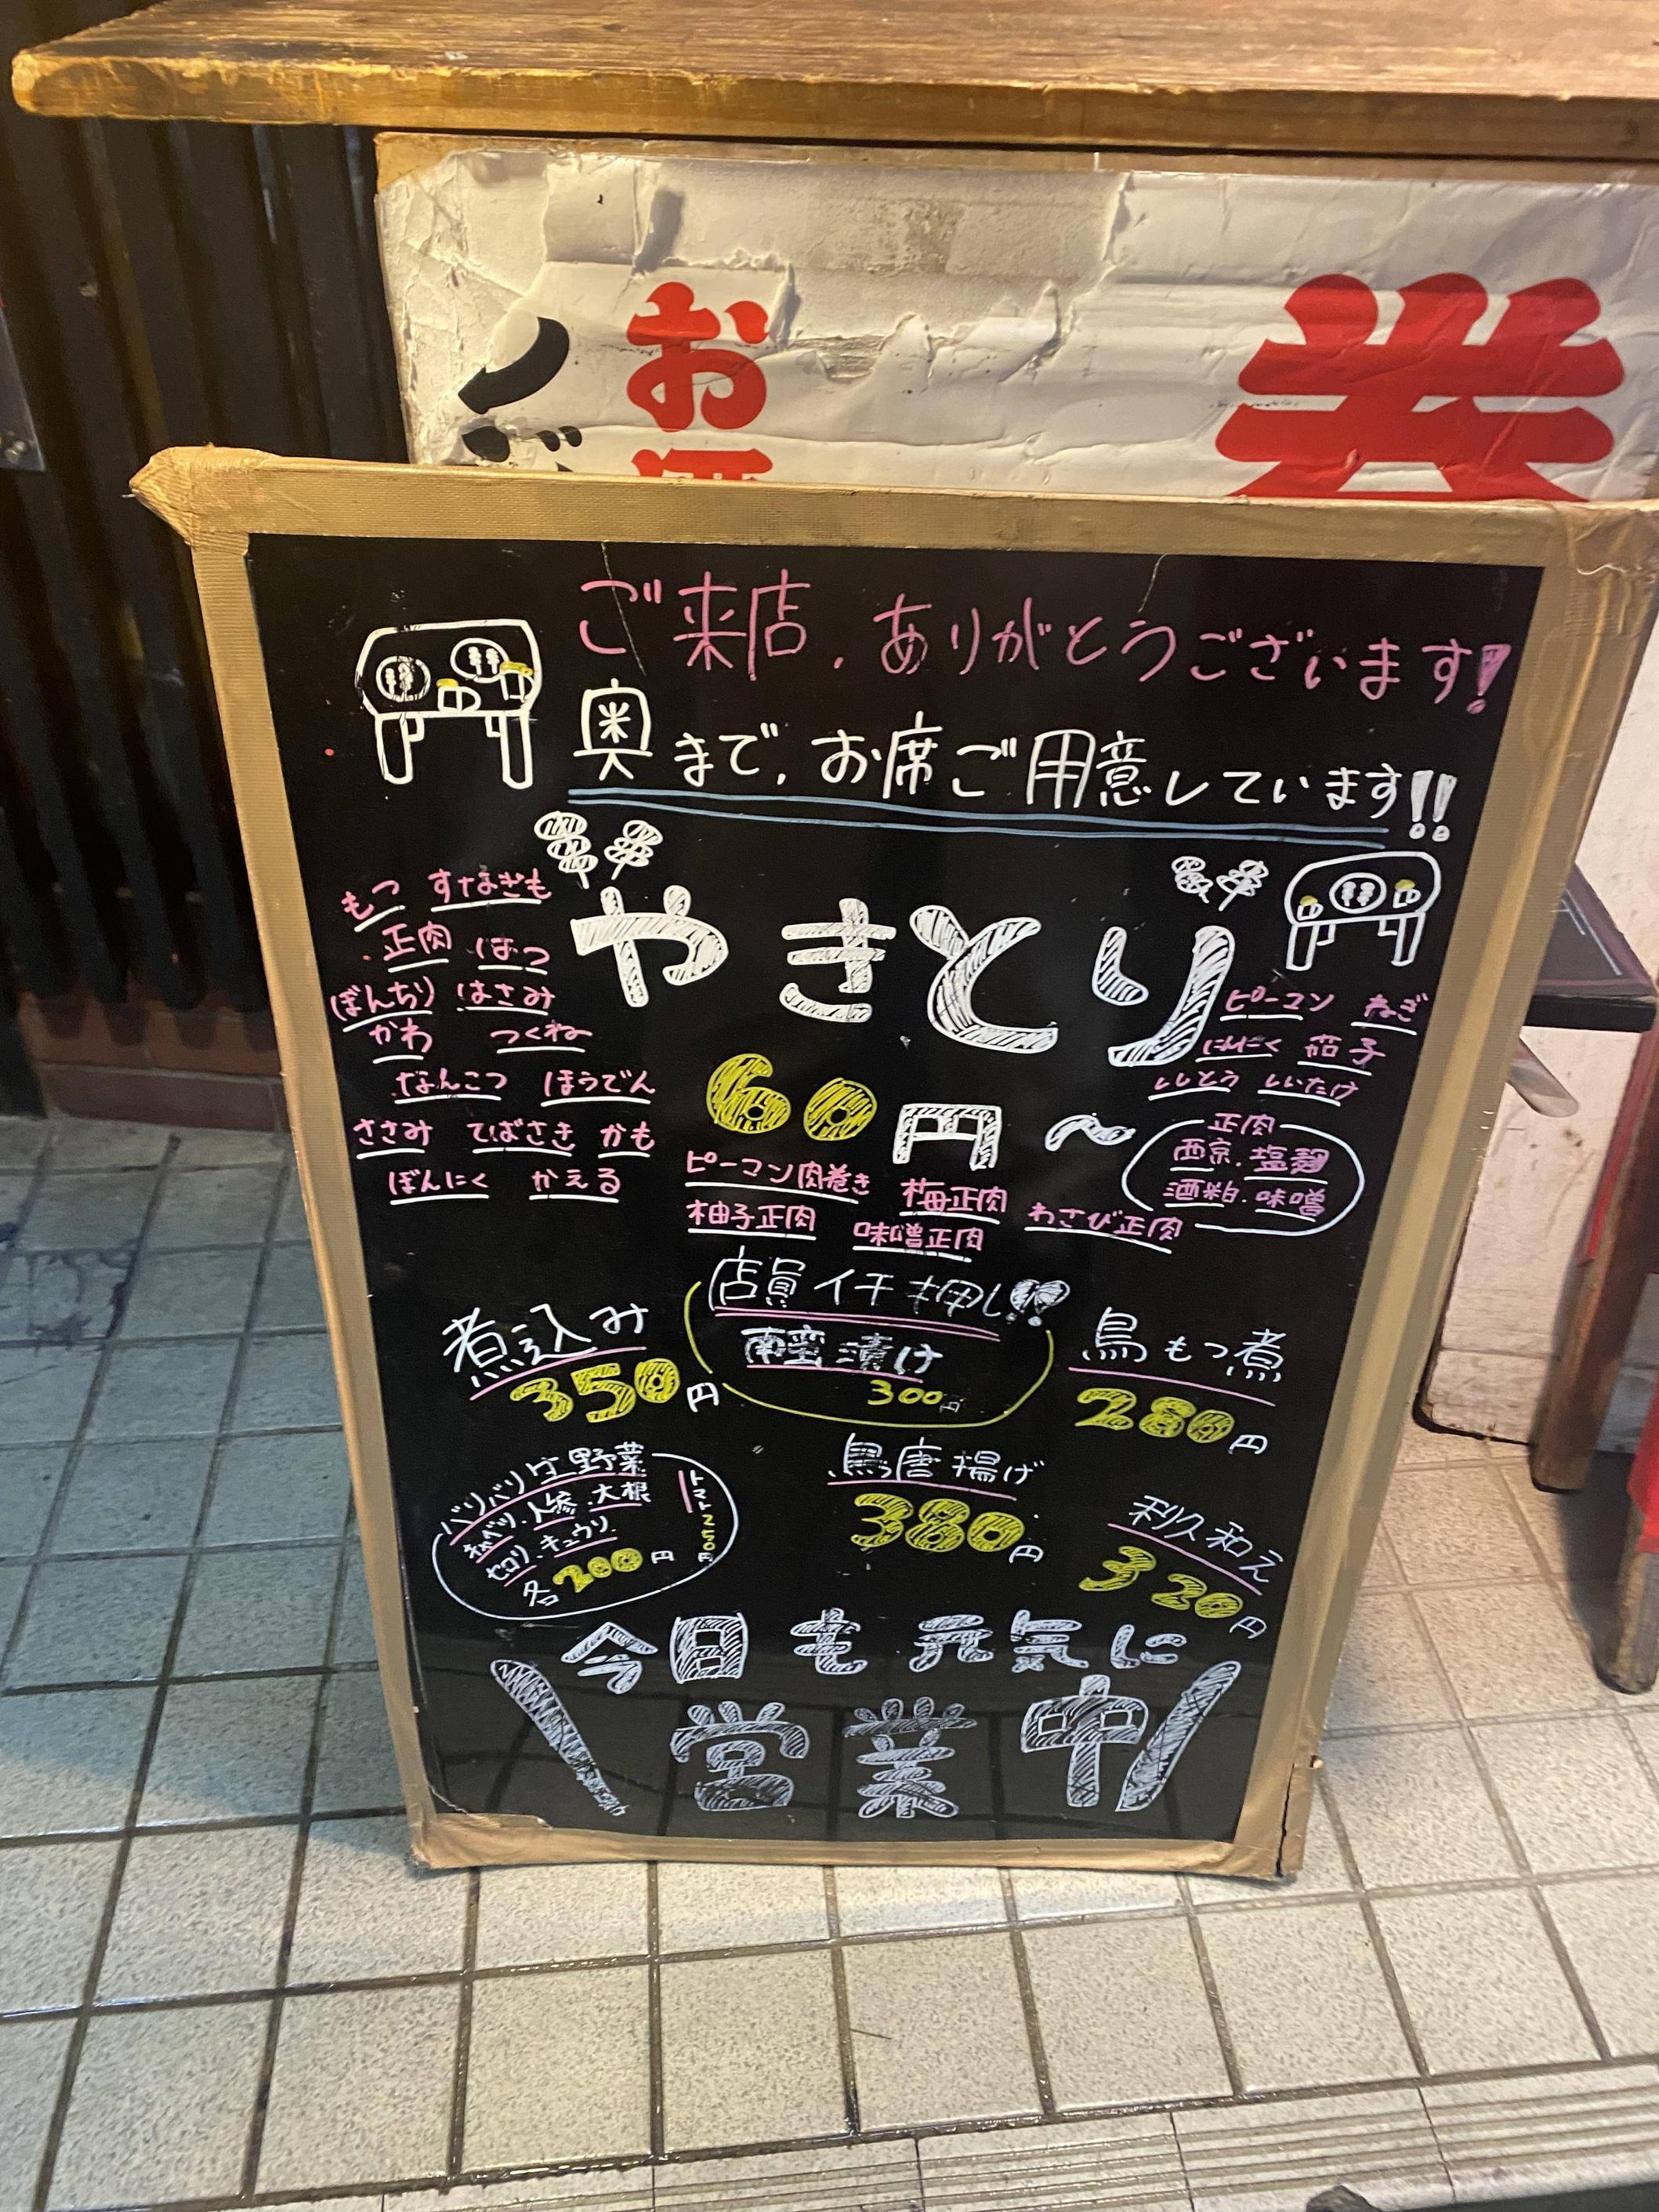 お
ご来店、ありがとうございます!
奥まで、お席ご用意しています!!
やきとり
60円〜
もつ すなぎも
正肉 はつ
ぼんぢり はさみ
かわ つくね
なんこつ ほうでん
ささみ てばさき かも
ぼんにく かえる
ピーマン ねぎ
にんにく 茄子
ししとう しいたけ
正肉
西京・塩麹
酒粕・味噌
ピーマン肉巻き 梅正肉
柚子正肉 味噌正肉 わさび正肉
店員イチ押し!!
南蛮漬け
300円
煮込み
350円
鳥もつ煮
280円
バリバリ生野菜
キャベツ・人参・大根
セロリ・キュウリ
各200円
トマト250円
鳥唐揚げ
380円
利久和え
320円
今日も元気に
営業中